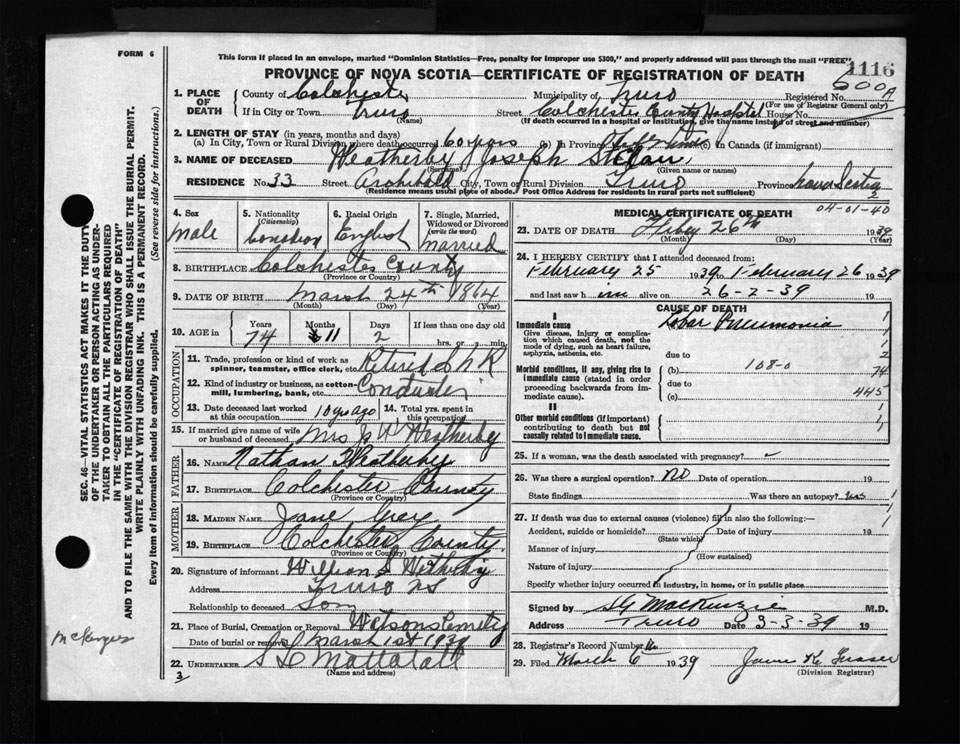 FORM 6
This form if placed in an envelope, marked "Dominion Statistics—Free, penalty for improper use $300," and properly addressed will pass through the mail "FREE"
1116
PROVINCE OF NOVA SCOTIA—CERTIFICATE OF REGISTRATION OF DEATH
1. PLACE OF DEATH County of Colchester Municipality of Truro Registered No. 500A
(For use of Registrar General only)
If in City or Town Truro (Name) Street Colchester County Hospital House No.
(If death occurred in a hospital or institution, give the name instead of street and number)
2. LENGTH OF STAY (in years, months and days)
(a) In City, Town or Rural Division where death occurred 60 years (b) in Province (c) in Canada (if immigrant)
3. NAME OF DECEASED Weatherby Joseph
(Surname) (Given name or names)
RESIDENCE No. 33 Street Archibald City, Town or Rural Division Truro Province Nova Scotia
(Residence means usual place of abode. Post Office Address for residents in rural parts not sufficient)
2
4. Sex
Male
5. Nationality (Citizenship)
Canadian
6. Racial Origin
English
7. Single, Married, Widowed or Divorced (write the word)
Married
8. BIRTHPLACE Colchester County
(Province or Country)
9. DATE OF BIRTH March 24th 1864
(Month) (Day) (Year)
10. AGE in Years 74 Months 11 Days 2 If less than one day old hrs. or min.
OCCUPATION
11. Trade, profession or kind of work as spinner, teamster, office clerk, etc. Retired
12. Kind of industry or business, as cotton-mill, lumbering, bank, etc. Conductor
13. Date deceased last worked at this occupation 10 yrs ago 14. Total yrs. spent in this occupation
15. If married give name of wife or husband of deceased Mrs J W Weatherby
FATHER
16. NAME Nathan Weatherby
17. BIRTHPLACE Colchester County
(Province or Country)
MOTHER
18. MAIDEN NAME Jane Grey
19. BIRTHPLACE Colchester County
(Province or Country)
20. Signature of informant
Address Truro NS
Relationship to deceased Son
21. Place of Burial, Cremation or Removal Watsons Cemetry
Date of burial or removal March 1st 1939
22. UNDERTAKER Mattatall
(Name and address)
3
MEDICAL CERTIFICATE OF DEATH
04-01-40
23. DATE OF DEATH 26th 1939
(Month) (Day) (Year)
24. I HEREBY CERTIFY that I attended deceased from:
February 25 1939 to February 26 1939
and last saw him alive on 26-2-39 19
CAUSE OF DEATH
I
Immediate cause
Give disease, injury or complication which caused death, not the mode of dying, such as heart failure, asphyxia, asthenia, etc.
Lobar Pneumonia 1
1
due to 2
Morbid conditions, if any, giving rise to immediate cause (stated in order proceeding backwards from immediate cause).
(b) 108-0 74
due to
(c) 445
II
Other morbid conditions (if important) contributing to death but not causally related to immediate cause.
1
1
1
25. If a woman, was the death associated with pregnancy?
26. Was there a surgical operation? no Date of operation 19
State findings Was there an autopsy? 1
27. If death was due to external causes (violence) fill in also the following:— 1
Accident, suicide or homicide? Date of injury 19
(State which)
Manner of injury
(How sustained)
Nature of injury
Specify whether injury occurred in industry, in home, or in public place
Signed by MacKenzie M.D.
Address Truro Date 3-3-39 19
28. Registrar's Record Number
29. Filed March 6 1939 K Fraser
(Division Registrar)
SEC. 46—VITAL STATISTICS ACT MAKES IT THE DUTY
OF THE UNDERTAKER OR PERSON ACTING AS UNDER-
TAKER TO OBTAIN ALL THE PARTICULARS REQUIRED
IN THE "CERTIFICATE OF REGISTRATION OF DEATH"
AND TO FILE THE SAME WITH THE DIVISION REGISTRAR WHO SHALL ISSUE THE BURIAL PERMIT.
WRITE PLAINLY WITH UNFADING INK. THIS IS A PERMANENT RECORD.
Every item of information should be carefully supplied. (See reverse side for instructions.)